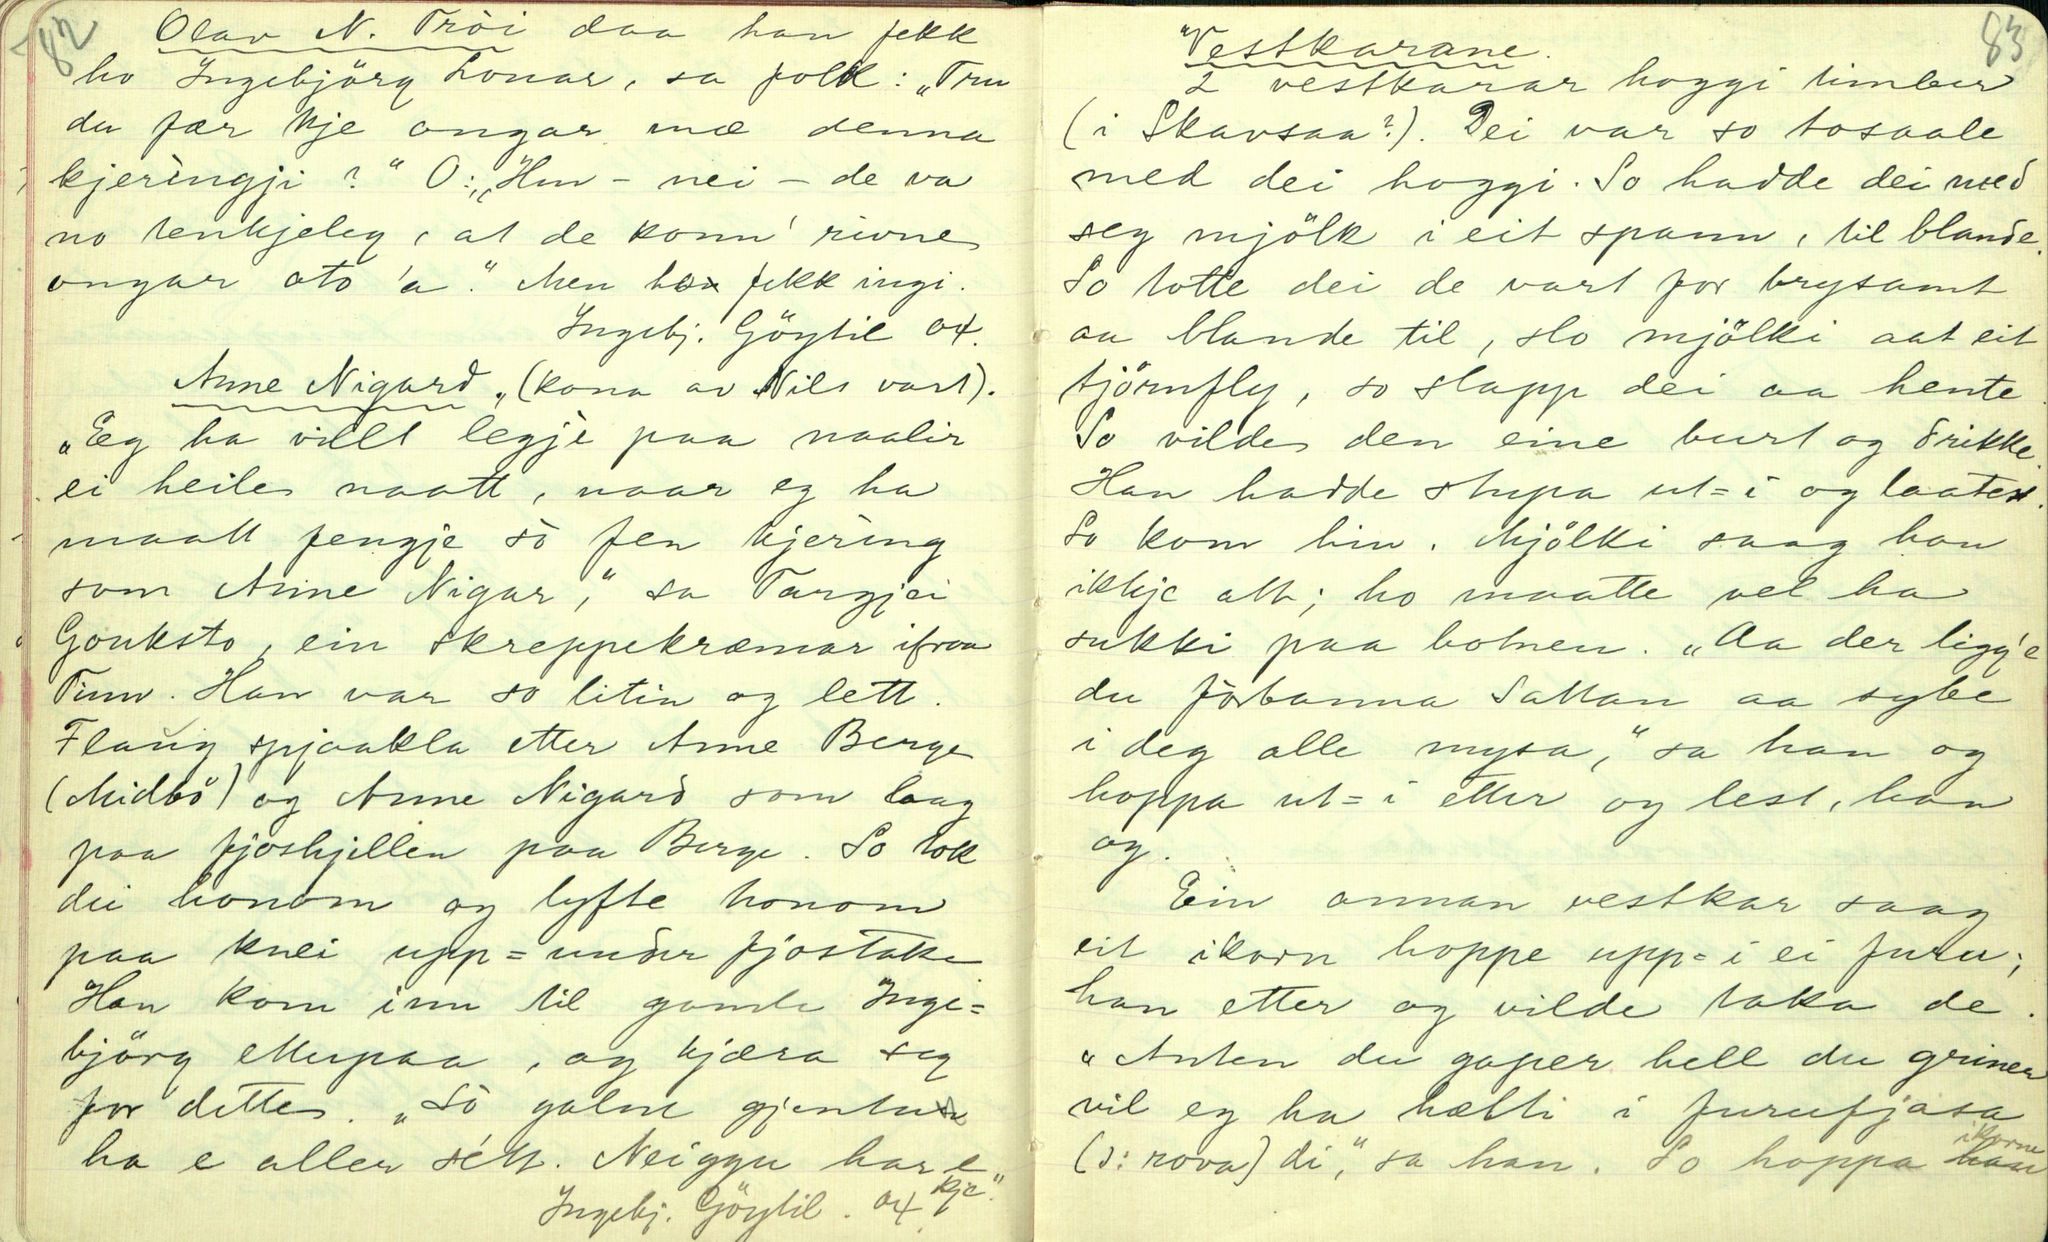 82
Olav N. Tröi daa han fekk
ho Ingebjörg Lonar, sa folk: „Tru
du fær kje ongar mæ denna
kjeringji?“ O: „Hm – nei – de va
no tenkjeleg, at de konn' rivne
ongar oto 'a.“ Men han fekk ingi.
Ingebj. Göytil 04.
Anne Nigard „(kona av Nils vart).
„Eg ha villt legje paa naalir
ei heile naatt, naar eg ha
maatt fengje sò fen kjering
som Anne Nigar,“ sa Targjei
Gouksto, ein skreppekræmar ifraa
Tinn. Han var so litin og lett.
Flaug spjaakla etter Anne Berge
(Midbö) og Anne Nigard som laag
paa fjoshjellen paa Berge. So tok
dei honom og lyfte honom
paa knei upp=under fjostake
Han kom inn til gamle Inge=
björg ettepaa, og kjæra seg
for dette. „Sò galne gjentur
ha e aller sétt. Neiggu har e
kje“.
Ingebj. Göytil. 04
83
"Vestkarane.
2 vestkarar hoggi timber
(i Skavsaa?). Dei var so tosaale
med dei hoggi. So hadde dei med
seg mjölk i eit spann, til blande.
So totte dei de vart for brysamt
aa blande til, slo mjölki aat eit
tjörnfly, so slapp dei aa hente.
So vilde den eine burt og drikke.
Han hadde stupa ut=i og laatest.
So kom hin. Mjölki saag han
ikkje att; ho maatte vel ha
sukki paa botnen. „Aa der ligg'e
du förbanna Sattan aa sybe
i deg alle mysa,“ sa han og
hoppa ut=i etter og lest, han
og.
Ein annan vestkar saag
eit ikorn hoppe upp=i ei furu;
han etter og vilde taka de.
„Anten du gaper hell du griner
vil eg ha hætti i furufjasa
(ɔ: rova) di,“ sa han. So hoppa ikorne